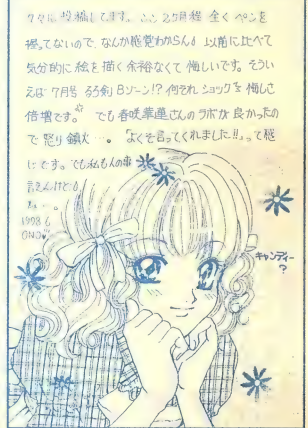 久々に投稿してます。ここ2ヶ月程 全く ペンを
握ってないので、なんか感覚わからん。以前に比べて
気分的に絵を描く余裕なくて 悔しいです。そうい
えば 7月号 るろ剣 Bゾーン!? 何それ ショック 悔しさ
倍増です。 でも 春咲華蓮さんのラポが 良かったの
で 怒り鎮火…。「よくぞ言ってくれました!!」って感
じです。でも私も人の事
言えんけども
ね…。
1998.6
ONO
キャンディー
?